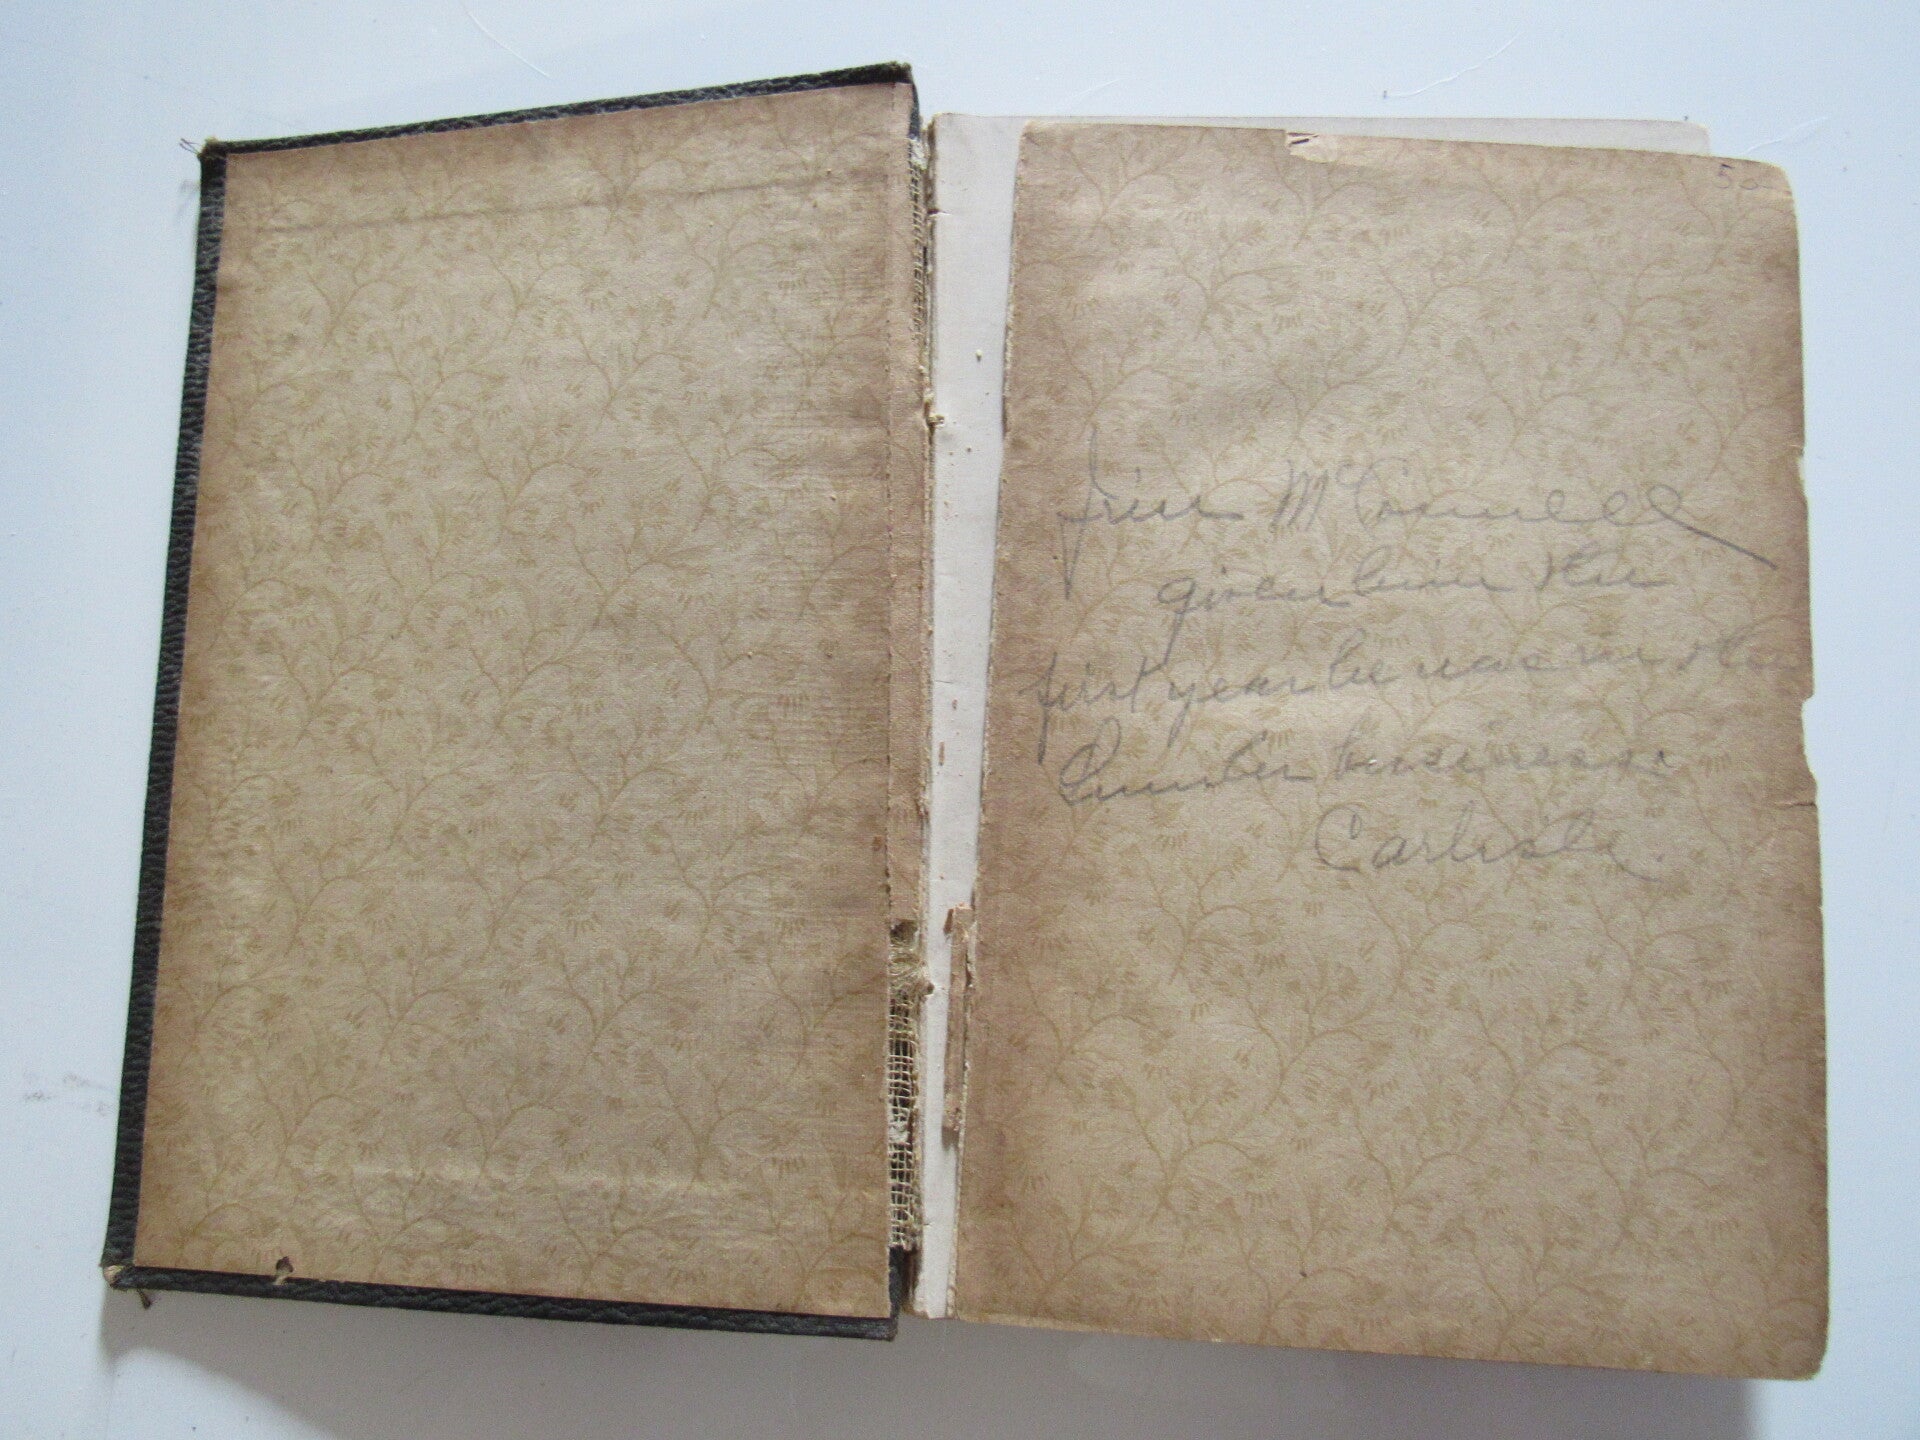 50
Jim McConnell
given him the
first year he was in the
Lumber business in
Carlisle.